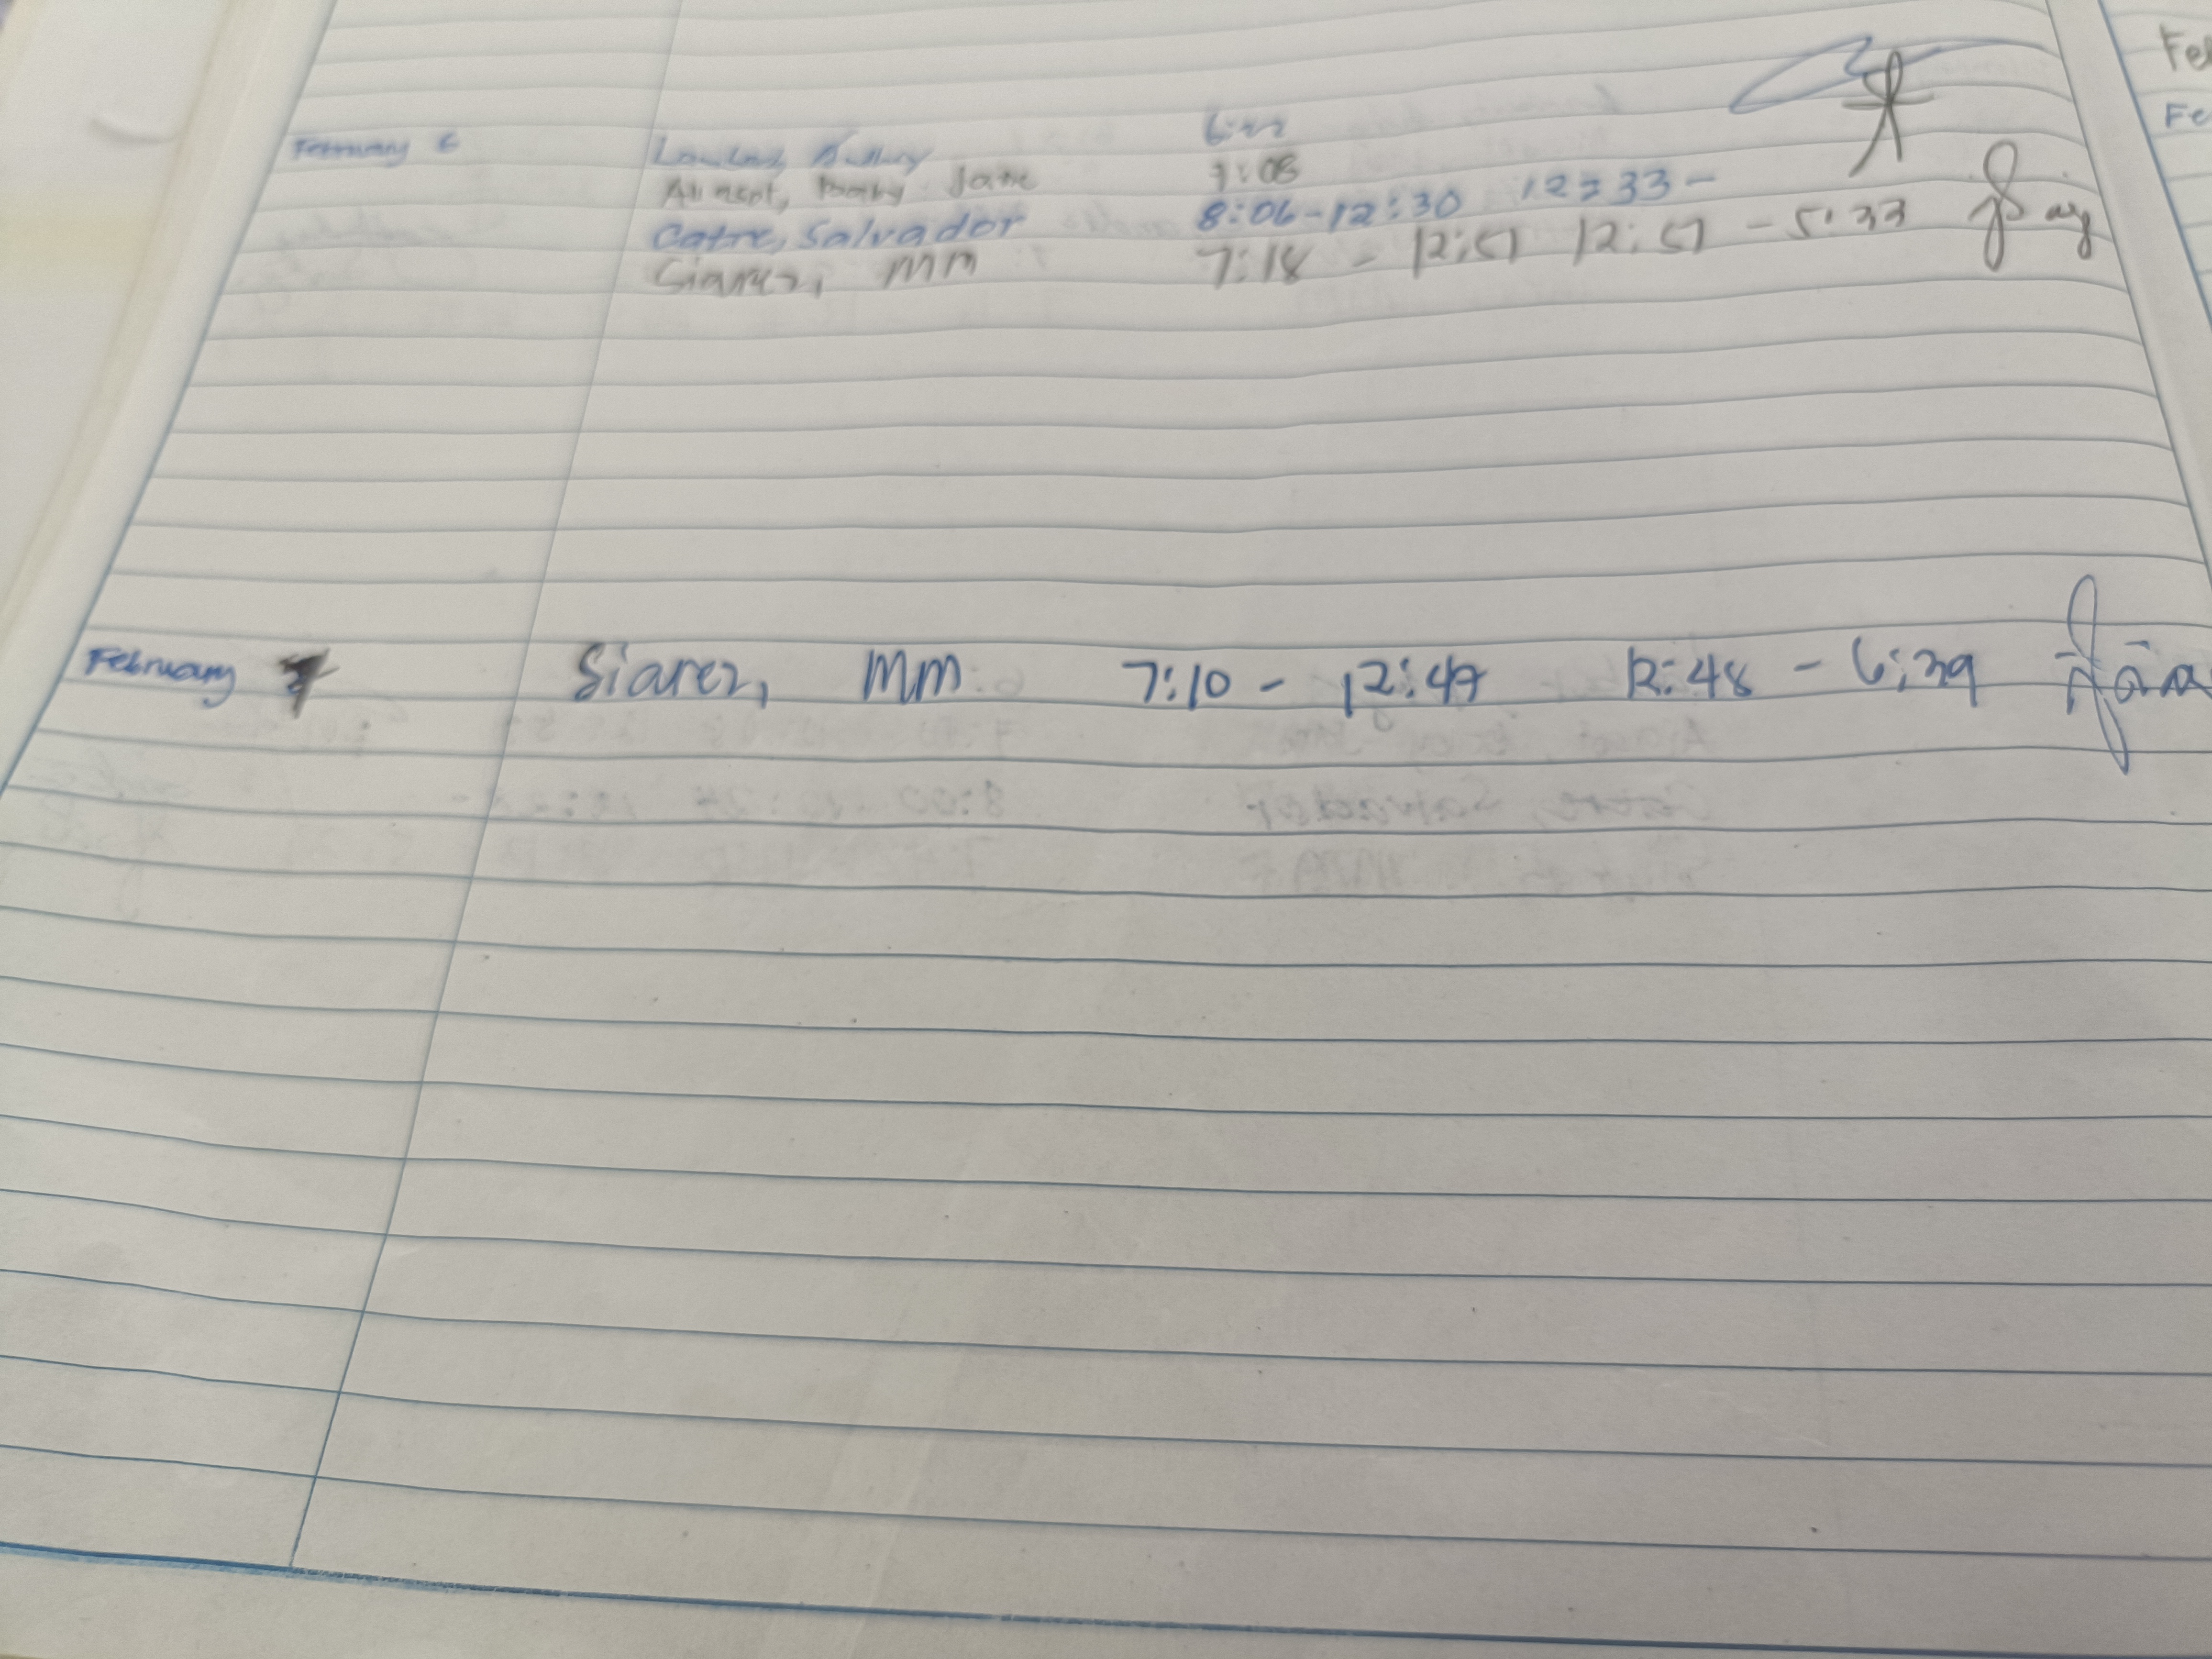 February 6
Baby Jane 7:08
Catre, Salvador 8:06-12:30 12:33-
Siarez, MM 7:18 - 12:51 12:51 - 5:33
February 7 Siarez, MM 7:10 - 12:47 12:48 - 6:39
Fe